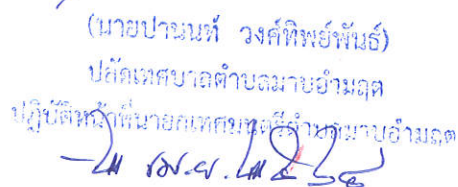 (นายปานนท์ วงศ์ทิพย์พันธ์)
ปลัดเทศบาลตำบลมาบอำมฤต
ปฏิบัติหน้าที่นายกเทศมนตรีตำบลมาบอำมฤต
เม.ย.